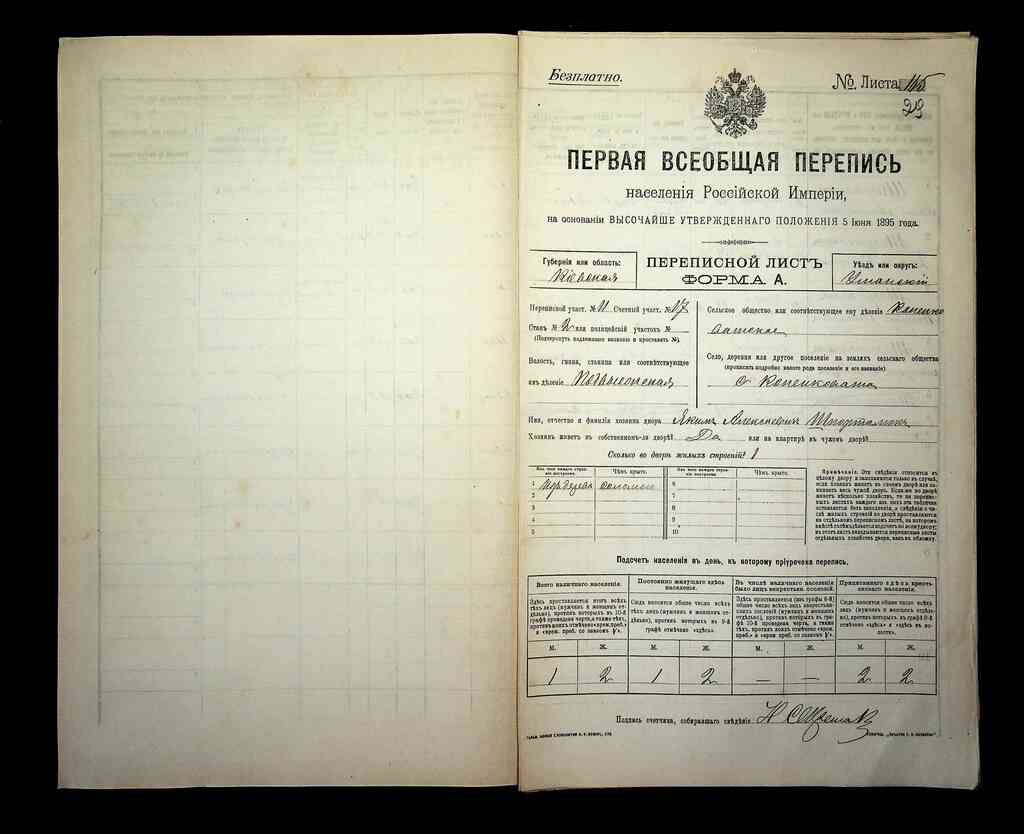 Безплатно.
№ Листа 115
29
ПЕРВАЯ ВСЕОБЩАЯ ПЕРЕПИСЬ
населенія Россійской Имперіи,
на основаніи ВЫСОЧАЙШЕ УТВЕРЖДЕННАГО ПОЛОЖЕНІЯ 5 Іюня 1895 года.
Губернія или область:
Кіевская
ПЕРЕПИСНОЙ ЛИСТЪ
ФОРМА А.
Уѣздъ или округъ:
Уманскій
Переписной участ. № 11 Счетный участ. № 17
Станъ № 2 или полицейскій участокъ №
(Подчеркнуть надлежащее названіе и проставить №).
Волость, гмина, станица или соотвѣтствующее
имъ дѣленіе
Сельское общество или соотвѣтствующее ему дѣленіе Копенко
ватское
Село, деревня или другое поселеніе на земляхъ сельскаго общества
(прописать подробно какого рода поселеніе и его названіе)
с Копенковата
Имя, отчество и фамилія хозяина двора Якимъ Алексѣевичъ
Хозяинъ живетъ въ собственномъ-ли дворѣ? Да или на квартирѣ въ чужомъ дворѣ?
Сколько во дворѣ жилыхъ строеній? 1
Изъ чего каждое строе-
ніе построено.
Чѣмъ крыто.
Изъ чего каждое строе-
ніе построено.
Чѣмъ крыто.
1 Изъ дерева соломою
2
3
4
5
6
7
8
9
10
Примѣчаніе. Эти свѣдѣнія относятся къ
цѣлому двору и заполняются только въ случаѣ,
если хозяинъ живетъ въ своемъ дворѣ или за-
нимаетъ весь чужой дворъ. Если же во дворѣ
живетъ нѣсколько хозяйствъ, то на перепис-
ныхъ листахъ каждаго изъ нихъ эта табличка
оставляется безъ заполненія, а свѣдѣнія о чи-
слѣ жилыхъ строеній во дворѣ проставляются
на отдѣльномъ переписномъ листѣ, на которомъ
вмѣстѣ съ тѣмъ дѣлается подсчетъ по всему двору;
въ этотъ листъ вкладываются переписные листы
отдѣльныхъ хозяйствъ двора, какъ въ обложку.
Подсчетъ населенія въ день, къ которому пріурочена перепись.
Всего наличнаго населенія.
Здѣсь проставляется итогъ всѣхъ
тѣхъ лицъ (мужчинъ и женщинъ от-
дѣльно), противъ которыхъ въ 10-й
графѣ проведена черта, а также тѣхъ,
противъ коихъ отмѣчено «врем. преб.»
Постоянно живущаго здѣсь
населенія.
Сюда вносится общее число всѣхъ
тѣхъ лицъ (мужчинъ и женщинъ от-
дѣльно), противъ которыхъ въ 9-й
графѣ отмѣчено «здѣсь».
Въ числѣ наличнаго населенія
было лицъ некрестьян. сословій.
Здѣсь проставляется (изъ графы 6-й)
общее число всѣхъ лицъ некрестьян-
скихъ сословій (мужчинъ и женщинъ
отдѣльно), противъ которыхъ въ
графѣ 10-й проведена черта, а также
тѣхъ, противъ коихъ отмѣчено «врем.
Приписаннаго здѣсь кресть-
янскаго населенія.
Сюда вносится общее число всѣхъ
лицъ (мужчинъ и женщинъ отдѣль-
но), противъ которыхъ въ графѣ 8-й
отмѣчено «здѣсь» и «здѣсь въ во-
лости».
М. Ж. М. Ж. М. Ж. М. Ж.
1 2 1 2 — — 2 2
Подпись счетчика, собиравшаго свѣдѣнія